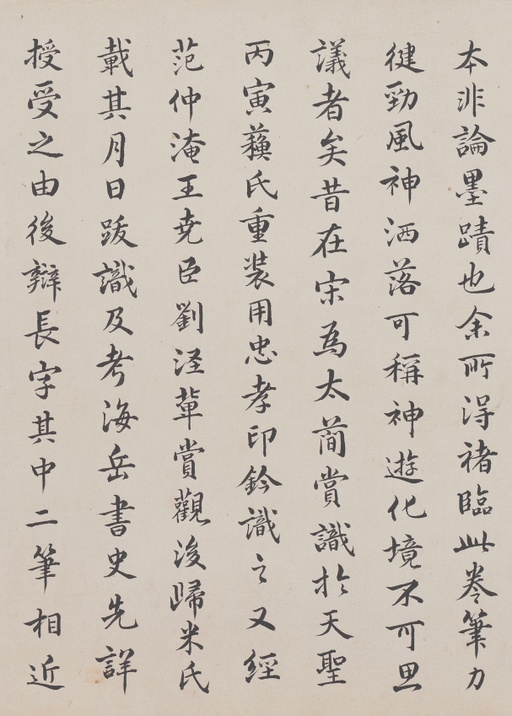 本非論墨蹟也余所得褚臨此卷筆力
健勁風神洒落可稱神遊化境不可思
議者矣昔在宋為太簡賞識於天聖
丙寅蘓氏重裝用忠孝印鈐識之又經
范仲淹王尭臣劉涇軰賞觀後歸米氏
載其月日跋識及考海岳書史先詳
授受之由後辯長字其中二筆相近